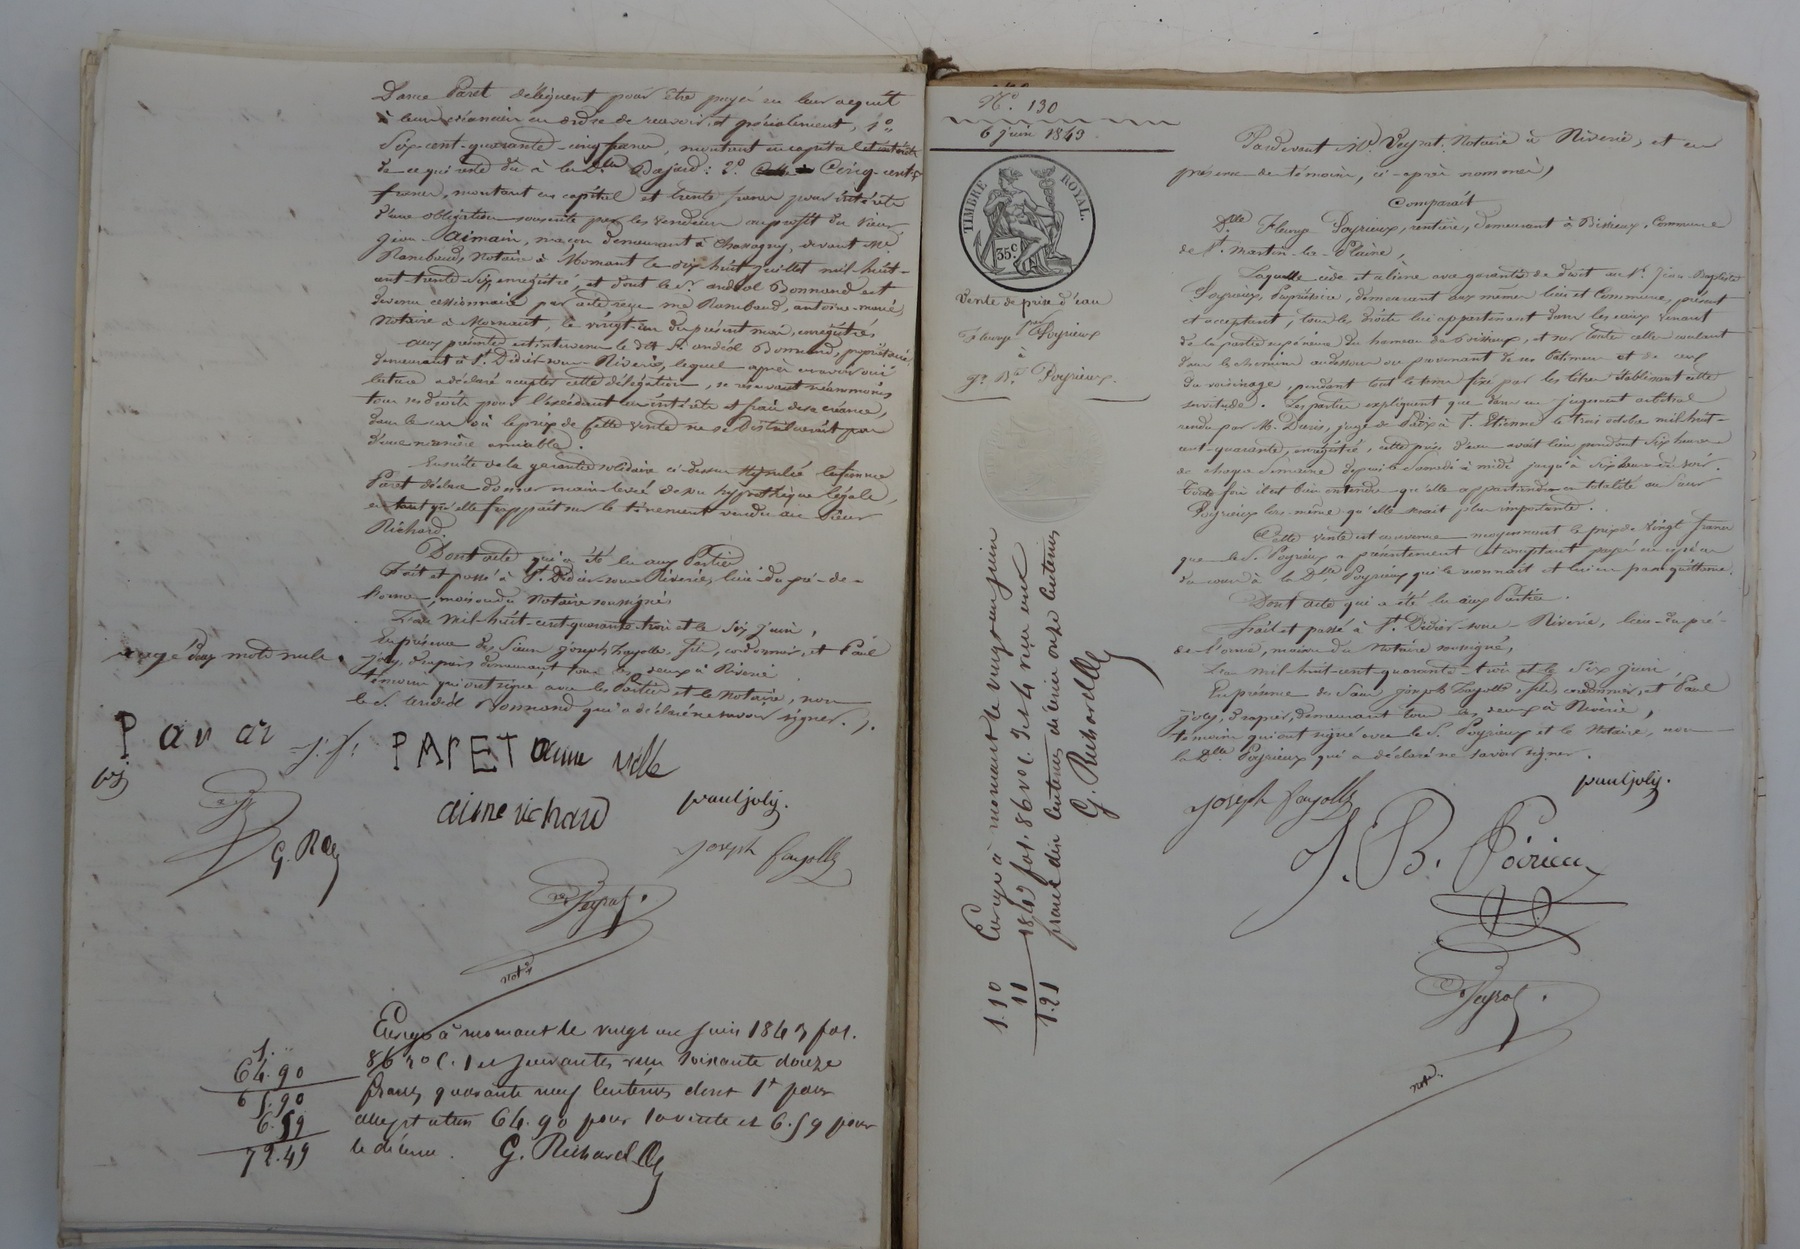 Dame Paret délèguent pour être payé en leur acquit
à leurs créanciers en ordre de recevoir et spécialement, 1o
Six-cent-quarante-cinq francs, montant en capital et intérêts
de ce qui reste dû à la Dlle Bajard: 2o Cinq-cents
francs, montant en capital et trente francs pour intérêts
d'une obligation souscrite par les vendeurs au profit du sieur
Jean Aimain, maçon demeurant à Chassagny, devant Me
Rambaud, Notaire à Mornant le dix huit juillet mil-huit-
cent trente-six, enregistré, et dont le Sr. andéol Bonnand est
devenu cessionnaire par acte reçu me Rambaud, antoine-marie,
Notaire à Mornant, le vingt-un du présent mois, enregistré
aux présentes est intervenu le dit Sr. andéol Bonnand, propriétaire
demeurant à St. Didier-sous-Riverie, lequel après en avoir ouï
lecture a déclaré accepter cette délégation, se réservant néanmoins
tous ses droits pour l'excédant en intérêts et frais de sa créance,
dans le cas où le prix de cette vente ne se distribuerait pas
d'une manière amiable.
Ensuite de la garantie solidaire ci-dessus stipulée la femme
Paret déclare donner main levée de son hypothèque légale,
en tant qu'elle frappait sur le tènement vendu au sieur
Richard.
Dont acte qui a été lu aux Parties
Fait et passé à St. Didier-sous-Riverie, lieu du pré-de-
l'orme, maison du Notaire soussigné
L'an mil-huit-cent-quarante-trois et le six juin,
En présence des Sieurs Joseph Fayolle, fils, cordonnier, et Paul
joly, drapier, demeurant tous les deux à Riverie
témoins qui ont signé avec les Parties et le Notaire, non
le S. andéol Bonnand qui a déclaré ne savoir signer.
rayé deux mots nuls.
PARET anne
aimé richard
pauljoly.
joseph fayolle
G. R
Peyrat.
notre
Enregé à mornant le vingt un juin 1843 fol.
86 ro C. 1 et suivantes reçu soixante douze
francs quarante neuf centimes dont 1f pour
acceptation 64.90 pour la vente et 6.59 pour
le décime. G. Richard
1. "
64.90
65.90
6.59
72.49
No. 130
6 juin 1843
TIMBRE ROYAL.
35c
Vente de prise d'eau
par
Fleurye Poyrieux
à
Jn. Bte Poyrieux.
Enregé à mornant le vingt un juin
1843 fol. 86 vo C. 3 et 4 reçu un
franc dix centimes décime onze centimes
G. Richard
1.10
11
1.21
Pardevant Me. Peyrat, Notaire à Riverie, et en
présence de témoins, ci-après nommés,
Comparait
Dlle Fleurye Poyrieux, rentière, demeurant à Bissieux, Commune
de St. Martin-la-Plaine,
Laquelle cède et aliène avec garantie de droit au Sr. Jean-Baptiste
Poyrieux, Propriétaire, demeurant aux mêmes lieu et Commune, présent
et acceptant, tous les droits lui appartenant dans les eaux venant
de la partie supérieure du hameau de Bissieux, et sur toutes celles coulant
dans le chemin au dessous ou provenant de ses bâtiments et de ceux
du voisinage, pendant tout le temps fixé par les titres établissant cette
servitude. Les parties expliquent que dans un jugement arbitral
rendu par M. Duris, juge de Paix à St. Etienne le trois octobre mil-huit-
cent-quarante, enregistré, cette prise d'eau avait lieu pendant six heures
de chaque semaine depuis le Samedi à midi jusqu'à six heures du soir.
Toute fois il est bien entendu qu'elle appartiendra en totalité au Sieur
Poyrieux lors-même qu'elle serait plus importante.
Cette vente est convenue moyennant le prix de vingt francs
que le S. Poyrieux a présentement et comptant payé en espèces
du cours à la Dlle Poyrieux qui le reconnait et lui en passe quittance.
Dont acte qui a été lu aux Parties.
Fait et passé à St. Didier-sous-Riverie, lieu-du-pré-
de-l'orme, maison du Notaire soussigné,
L'an mil-huit-cent-quarante-trois et le six juin
En présence des Sieurs joseph Fayolle, fils cordonnier, et Paul
joly, drapier, demeurant tous les deux à Riverie,
témoins qui ont signé avec le S. Poyrieux et le Notaire, non
la Dlle Poyrieux qui a déclaré ne savoir signer.
joseph fayolle
pauljoly.
J. B. Poirieux
Peyrat.
notre